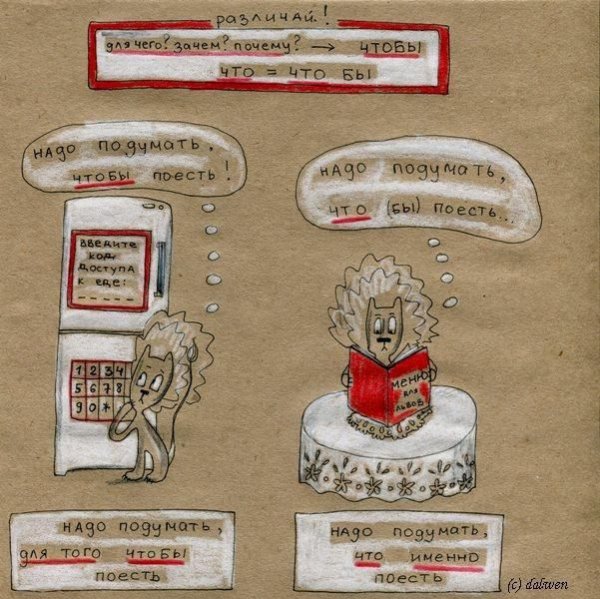 различай!
для чего? зачем? почему? → чтобы
что = что бы
надо подумать,
чтобы поесть!
надо подумать,
что (бы) поесть...
введите
код
доступа
к еде:
_ _ _ _ _
1 2 3 4
5 6 7 8
9 0 *
меню
для
львов
надо подумать,
для того чтобы
поесть
надо подумать,
что именно
поесть
(c) dalwen